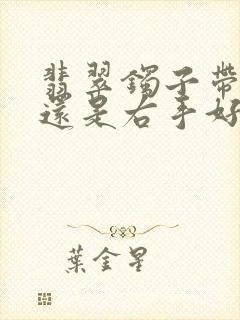 翡翠鐲子帶
還是右手好
葉金星